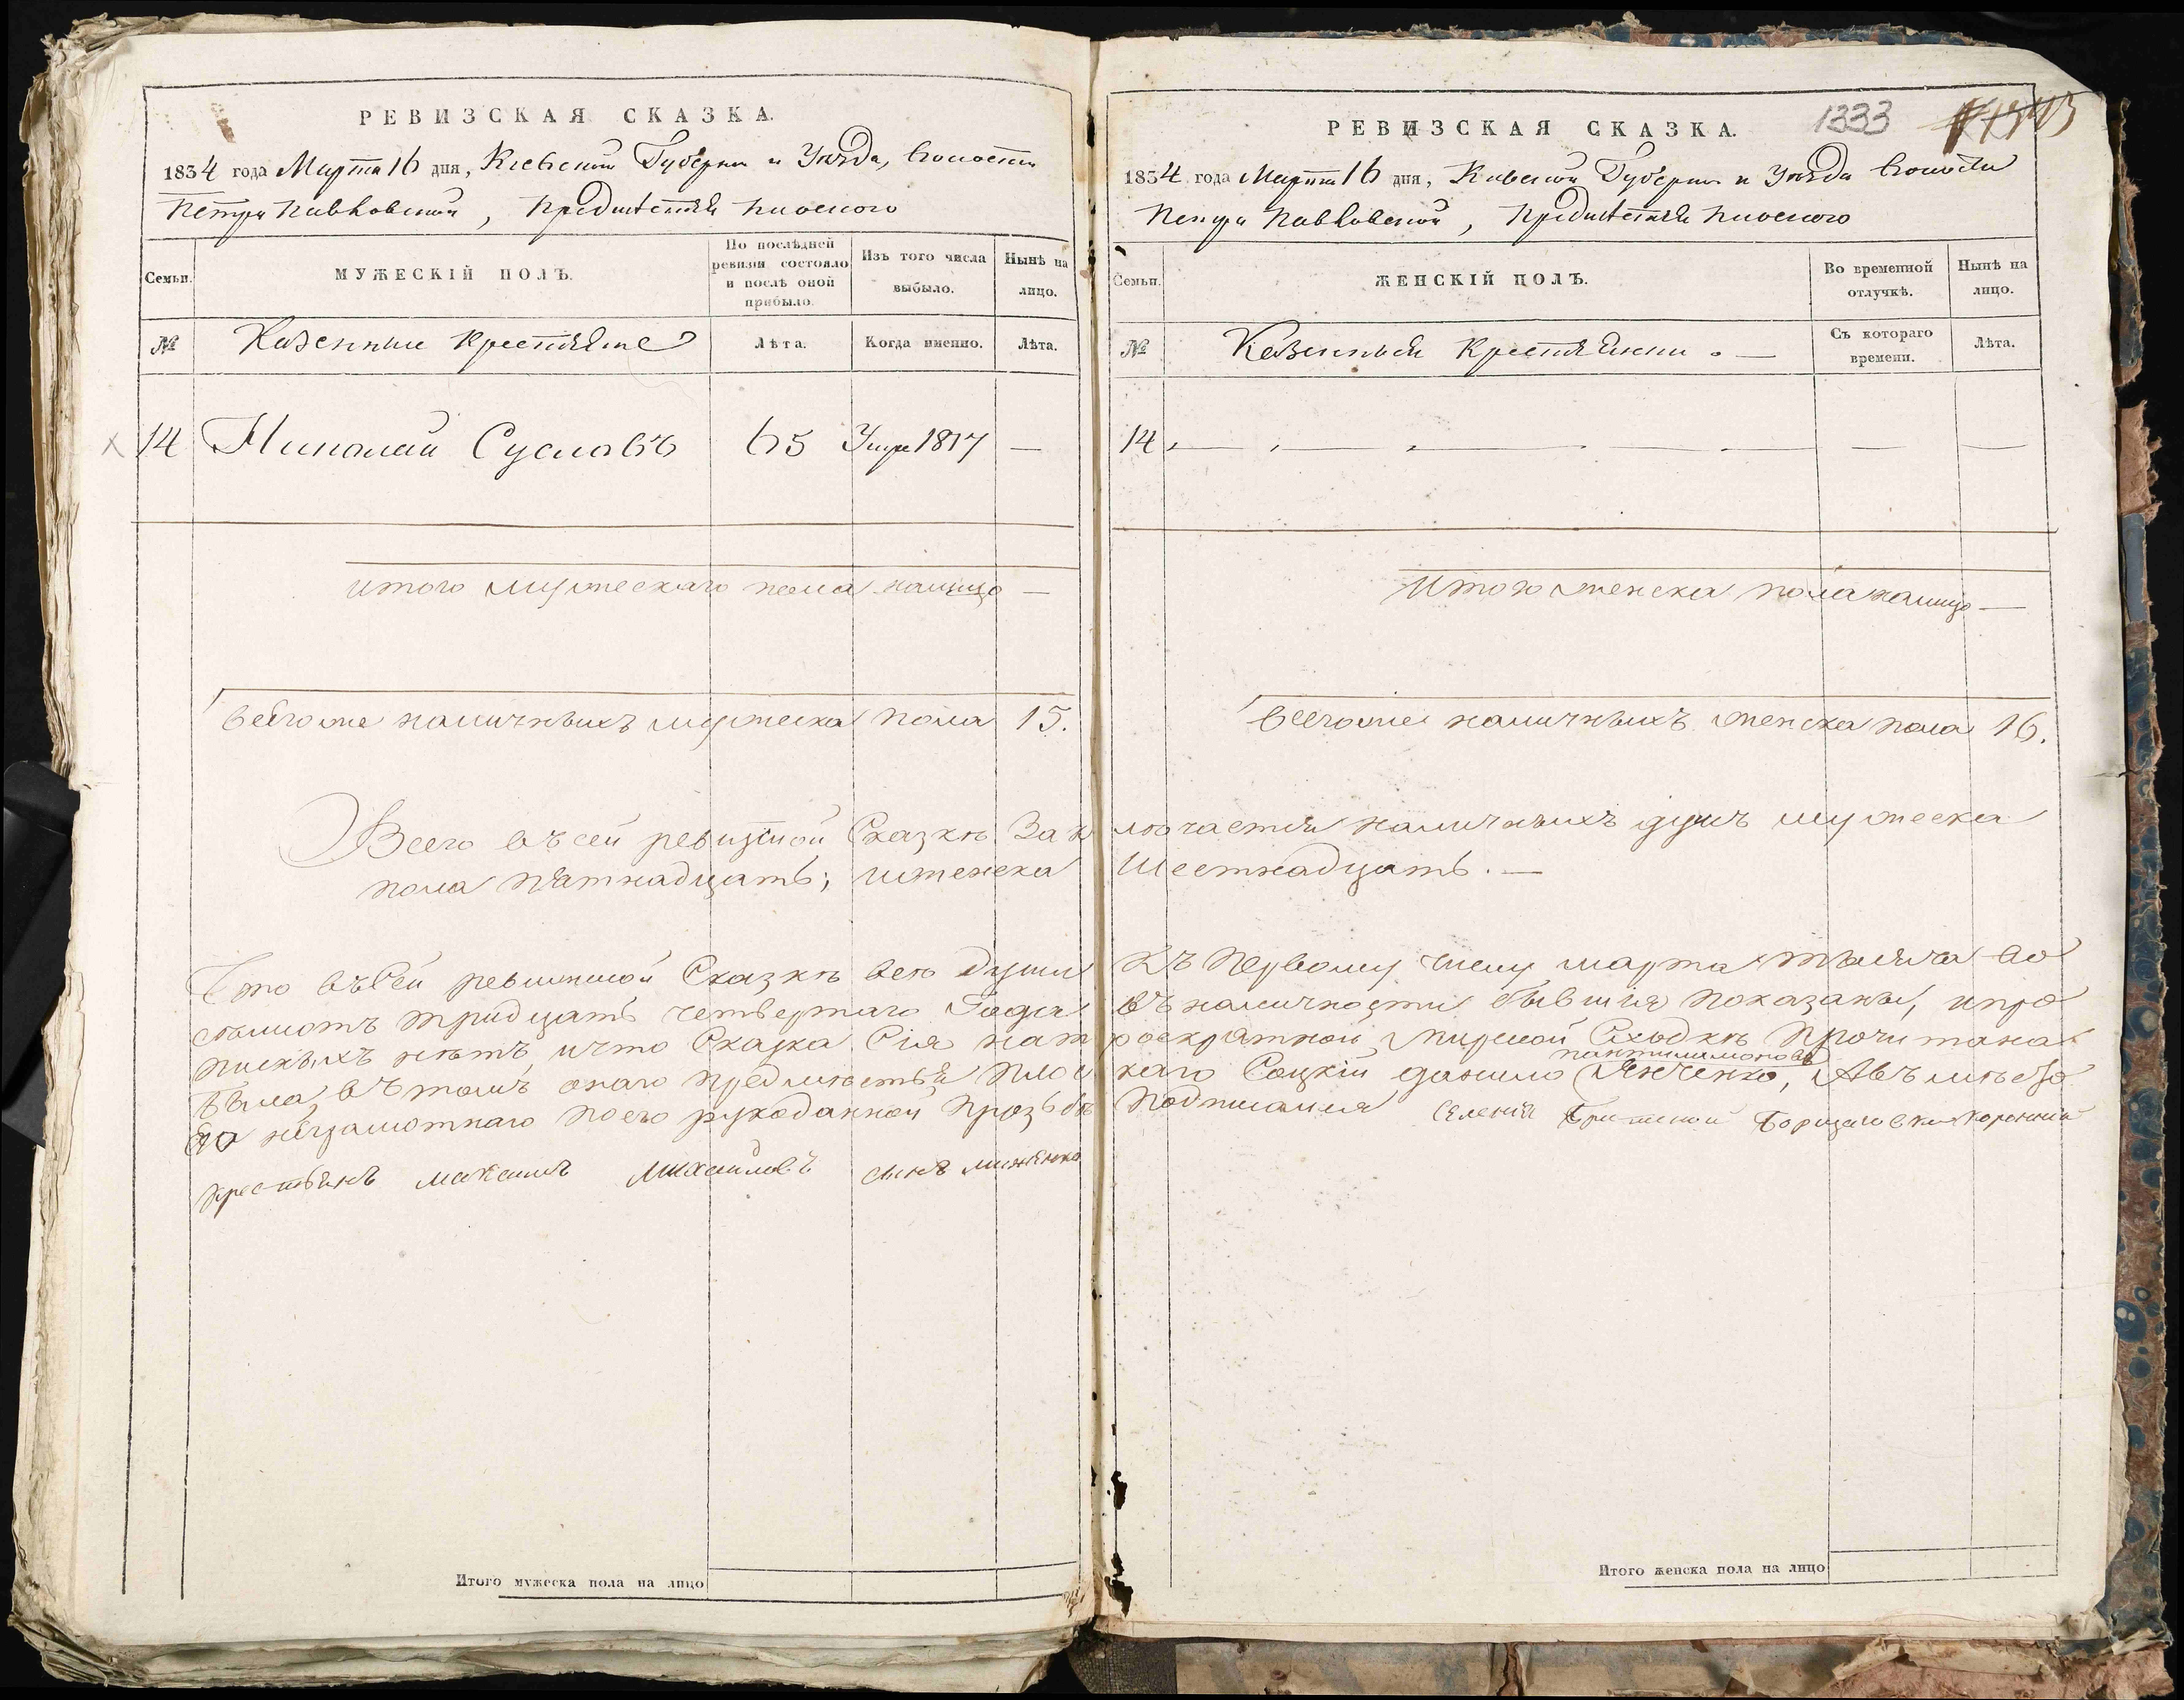 РЕВИЗСКАЯ СКАЗКА.
1834 года Марта 16 дня, Кіевской Губерніи и Уѣзда, Волости
Петро Павловской, Предмѣстья Плоского
Семьи.
МУЖЕСКІЙ ПОЛЪ.
По послѣдней ревизіи состояло и послѣ оной прибыло.
Изъ того числа выбыло.
Нынѣ на лицо.
№
Казенные Крестьяне
Лѣта.
Когда именно.
Лѣта.
14 Николай Сусловъ 65 Умре 1817 —
итого мужескаго пола налицо —
всегоже наличныхъ мужеска пола 15.
РЕВИЗСКАЯ СКАЗКА.
1333
1834 года Марта 16 дня, Кіевской Губерніи и Уѣзда Волости
Петро Павловской, Предмѣстья Плоского
Семьи.
ЖЕНСКІЙ ПОЛЪ.
Во временной отлучкѣ.
Нынѣ на лицо.
№
Казенныя Крестьянки. —
Съ котораго времени.
Лѣта.
14 — — — — — — —
Итого женска пола налицо —
всегоже наличныхъ женска пола 16.
Всего въ сей ревизкой Сказкѣ Заключается наличныхъ душъ мужеска
пола пятнадцать; иженска Шестнадцать. —
Что въ сей ревизкой Сказкѣ всѣ души Къ Первому числу марта тысяча во
сьмисотъ тридцать четвертаго Года въ наличности бывшія показаны, ипро
писныхъ нѣтъ, ичто Сказка Сія на троекратной мирской Сходкѣ Прочитана
Была, въ томъ онаго предмѣстья Плоскаго Соцкій данило пантилимоновъ Янченко, Авъ мѣсто
его неграмотнаго по его рукоданной прозьбѣ Подписался Селенія Борщаговки коронній
крестьянъ максимъ Михайловъ сынъ
Итого мужеска пола на лицо
Итого женска пола на лицо